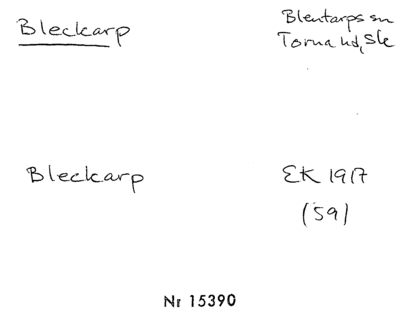 Bleckarp
Blentarps sn
Torna hd, Sk
Bleckarp
EK 1917
(59)
Nr 15390